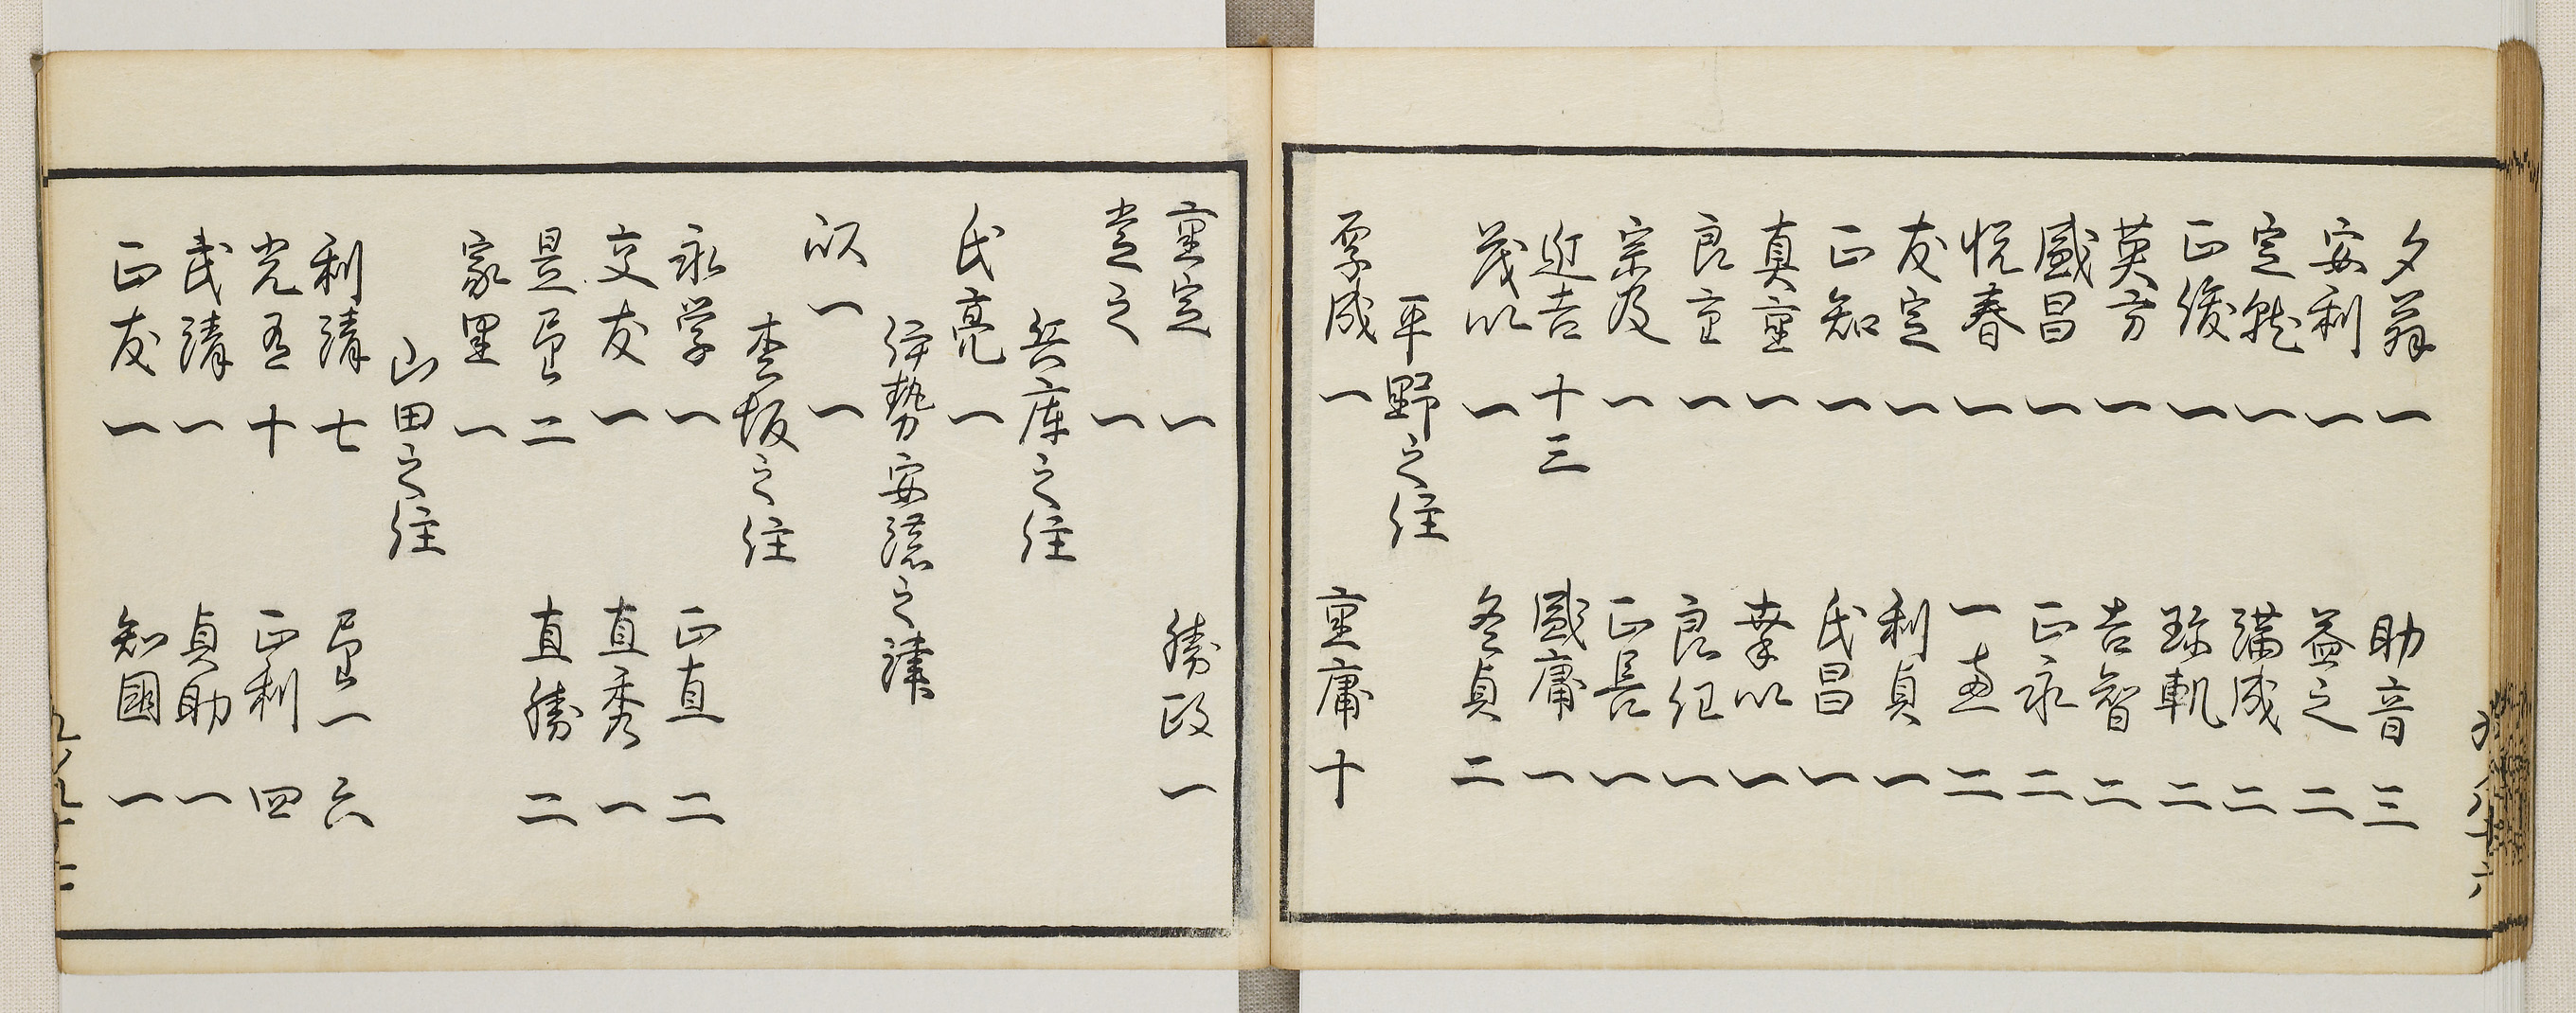 夕翁 一 助音 三
安利 一 益之 二
定就 一 満成 二
正俊 一 珎軌 二
英方 一 吉智 二
盛昌 一 正永 二
悦春 一 一 二
友定 一 利貞 一
正知 一 氏昌 一
真重 一 以 一
良重 一 良 一
宗及 一 正長 一
近吉 十三 盛庸 一
茂以 一 冬貞 二
平野之住
成 一 重庸 十
重定 一 勝政 一
之 一
兵庫之住
氏亮 一
伊勢安濃之津
以一 一
松坂之住
永学 一 正直 二
交友 一 直秀 一
是 二 直勝 二
家里 一
山田之住
利清 七 一 六
光 十 正利 四
武清 一 貞助 一
正友 一 知國 一